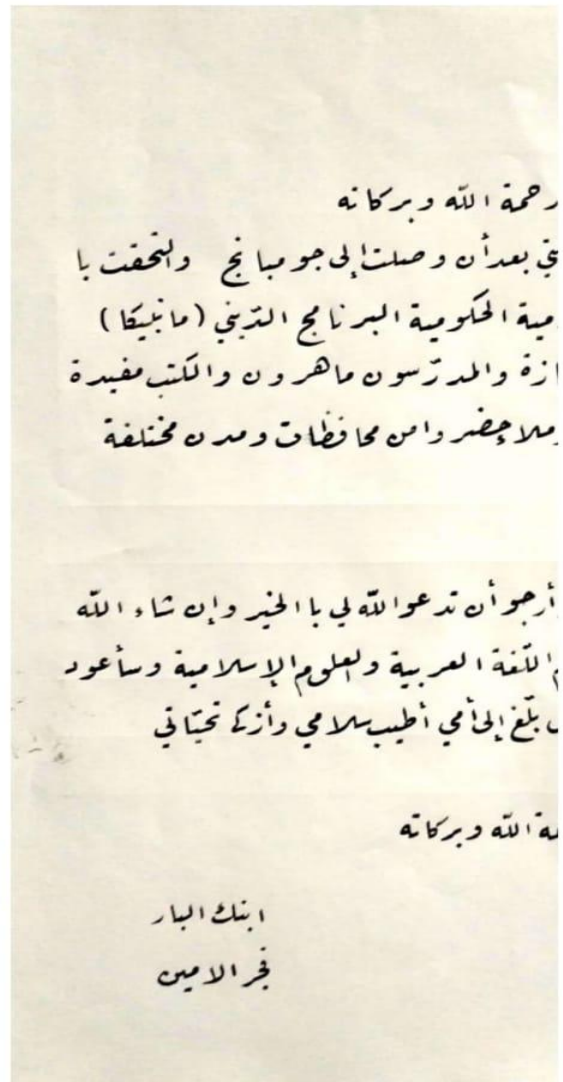 رحمة الله وبركاته
بعد أن وصلت إلى جومبانج والتحقت با
مية الحكومية البرنامج الدّيني (مانبيكا)
ازة والمدرّسون ماهرون والكتب مفيدة
من محافظات ومدن مختلفة
أرجو أن تدعو اللّه لي با الخير وإن شاء اللّه
اللّغة العربية والعلوم الإسلامية وسأعود
بلّغ إلى أمي أطيب سلامي وأزكى تحيّاتي
مة اللّه وبركاته
ابنك البار
فجر الامين